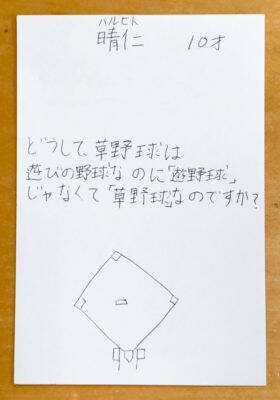 ハルヒト
晴仁 10才
どうして、草野球は
遊びの野球な のに「遊野球」
じゃなくて「草野球」なのですか?